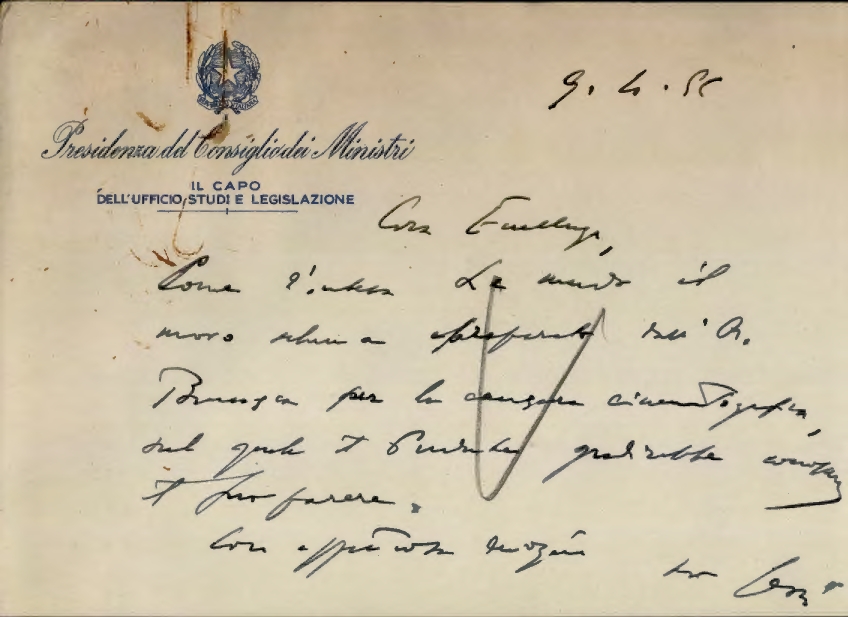 9. 4. 56
Presidenza del Consiglio dei Ministri
IL CAPO
DELL'UFFICIO STUDI E LEGISLAZIONE
Cara
Come d'intesa Le mando il
nuovo schema preparato dall'On.
Brusasca per la censura cinematografica,
sul quale il Presidente gradirebbe conoscere
il Suo parere.
Con affettuosa
suo